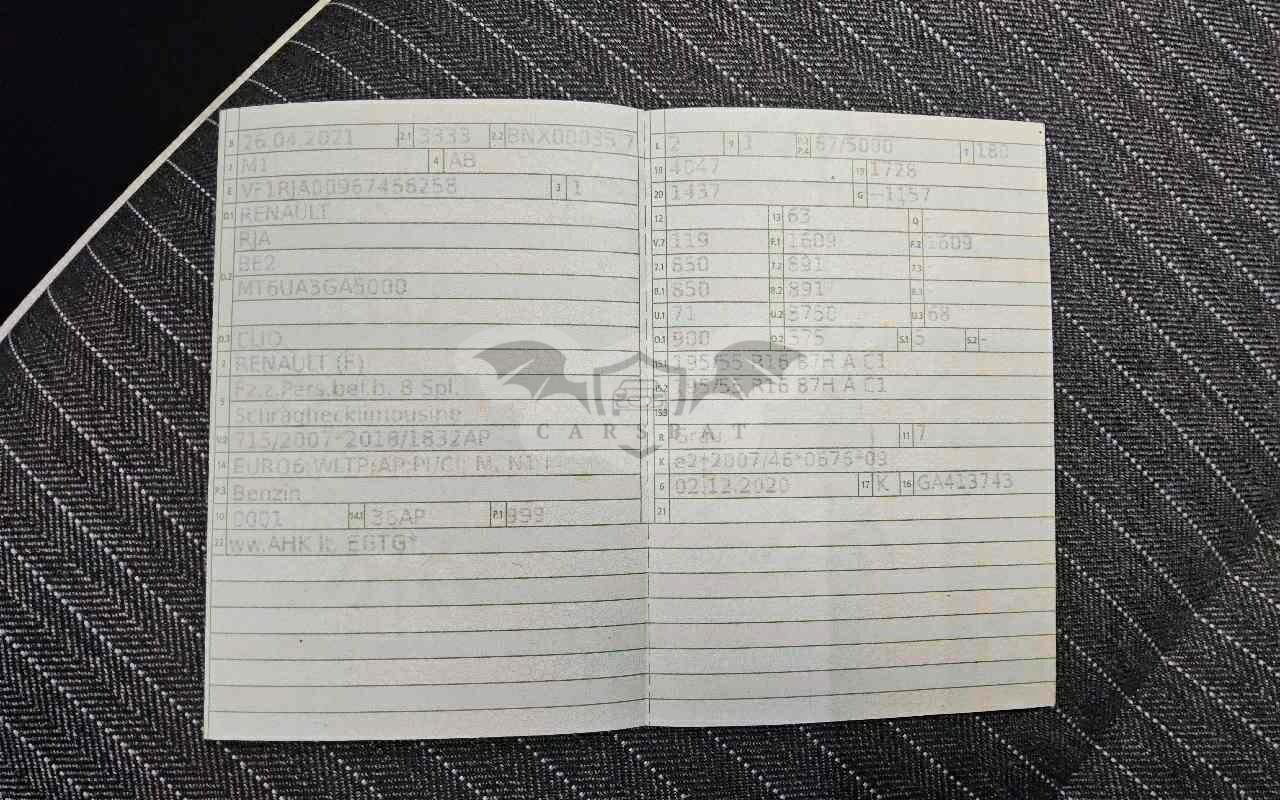 B 26.04.2021 2.1 3333 2.2 BNX00035 7
J M1 4 AB
E VF1RJA00967456258 3 1
D.1 RENAULT
RJA
BE2
D.2 MT6UA3GA5000
D.3 CLIO
2 RENAULT (F)
5 Fz.z.Pers.bef.b. 8 Spl.
Schräghecklimousine
V.9 715/2007*2018/1832AP
14 EURO6;WLTP;AP;PI/CI; M, N1 I
P.3 Benzin
10 0001 14.1 36AP P.1 999
22 ww.AHK lt. EGTG*
L 2 9 1 P.2 P.4 67/5000 T 180
18 4047 19 1728
20 1437 G 1157
12 13 63 Q -
V.7 119 F.1 1609 F.2 1609
7.1 850 7.2 891 7.3 -
8.1 850 8.2 891 8.3 -
U.1 71 U.2 3750 U.3 68
O.1 900 O.2 575 S.1 5 S.2 -
15.1 195/55 R16 87H A C1
15.2 195/55 R16 87H A C1
15.3
R Grau 11 7
K e2*2007/46*0676*09
6 02.12.2020 17 K 16 GA413743
21
CARSBAT